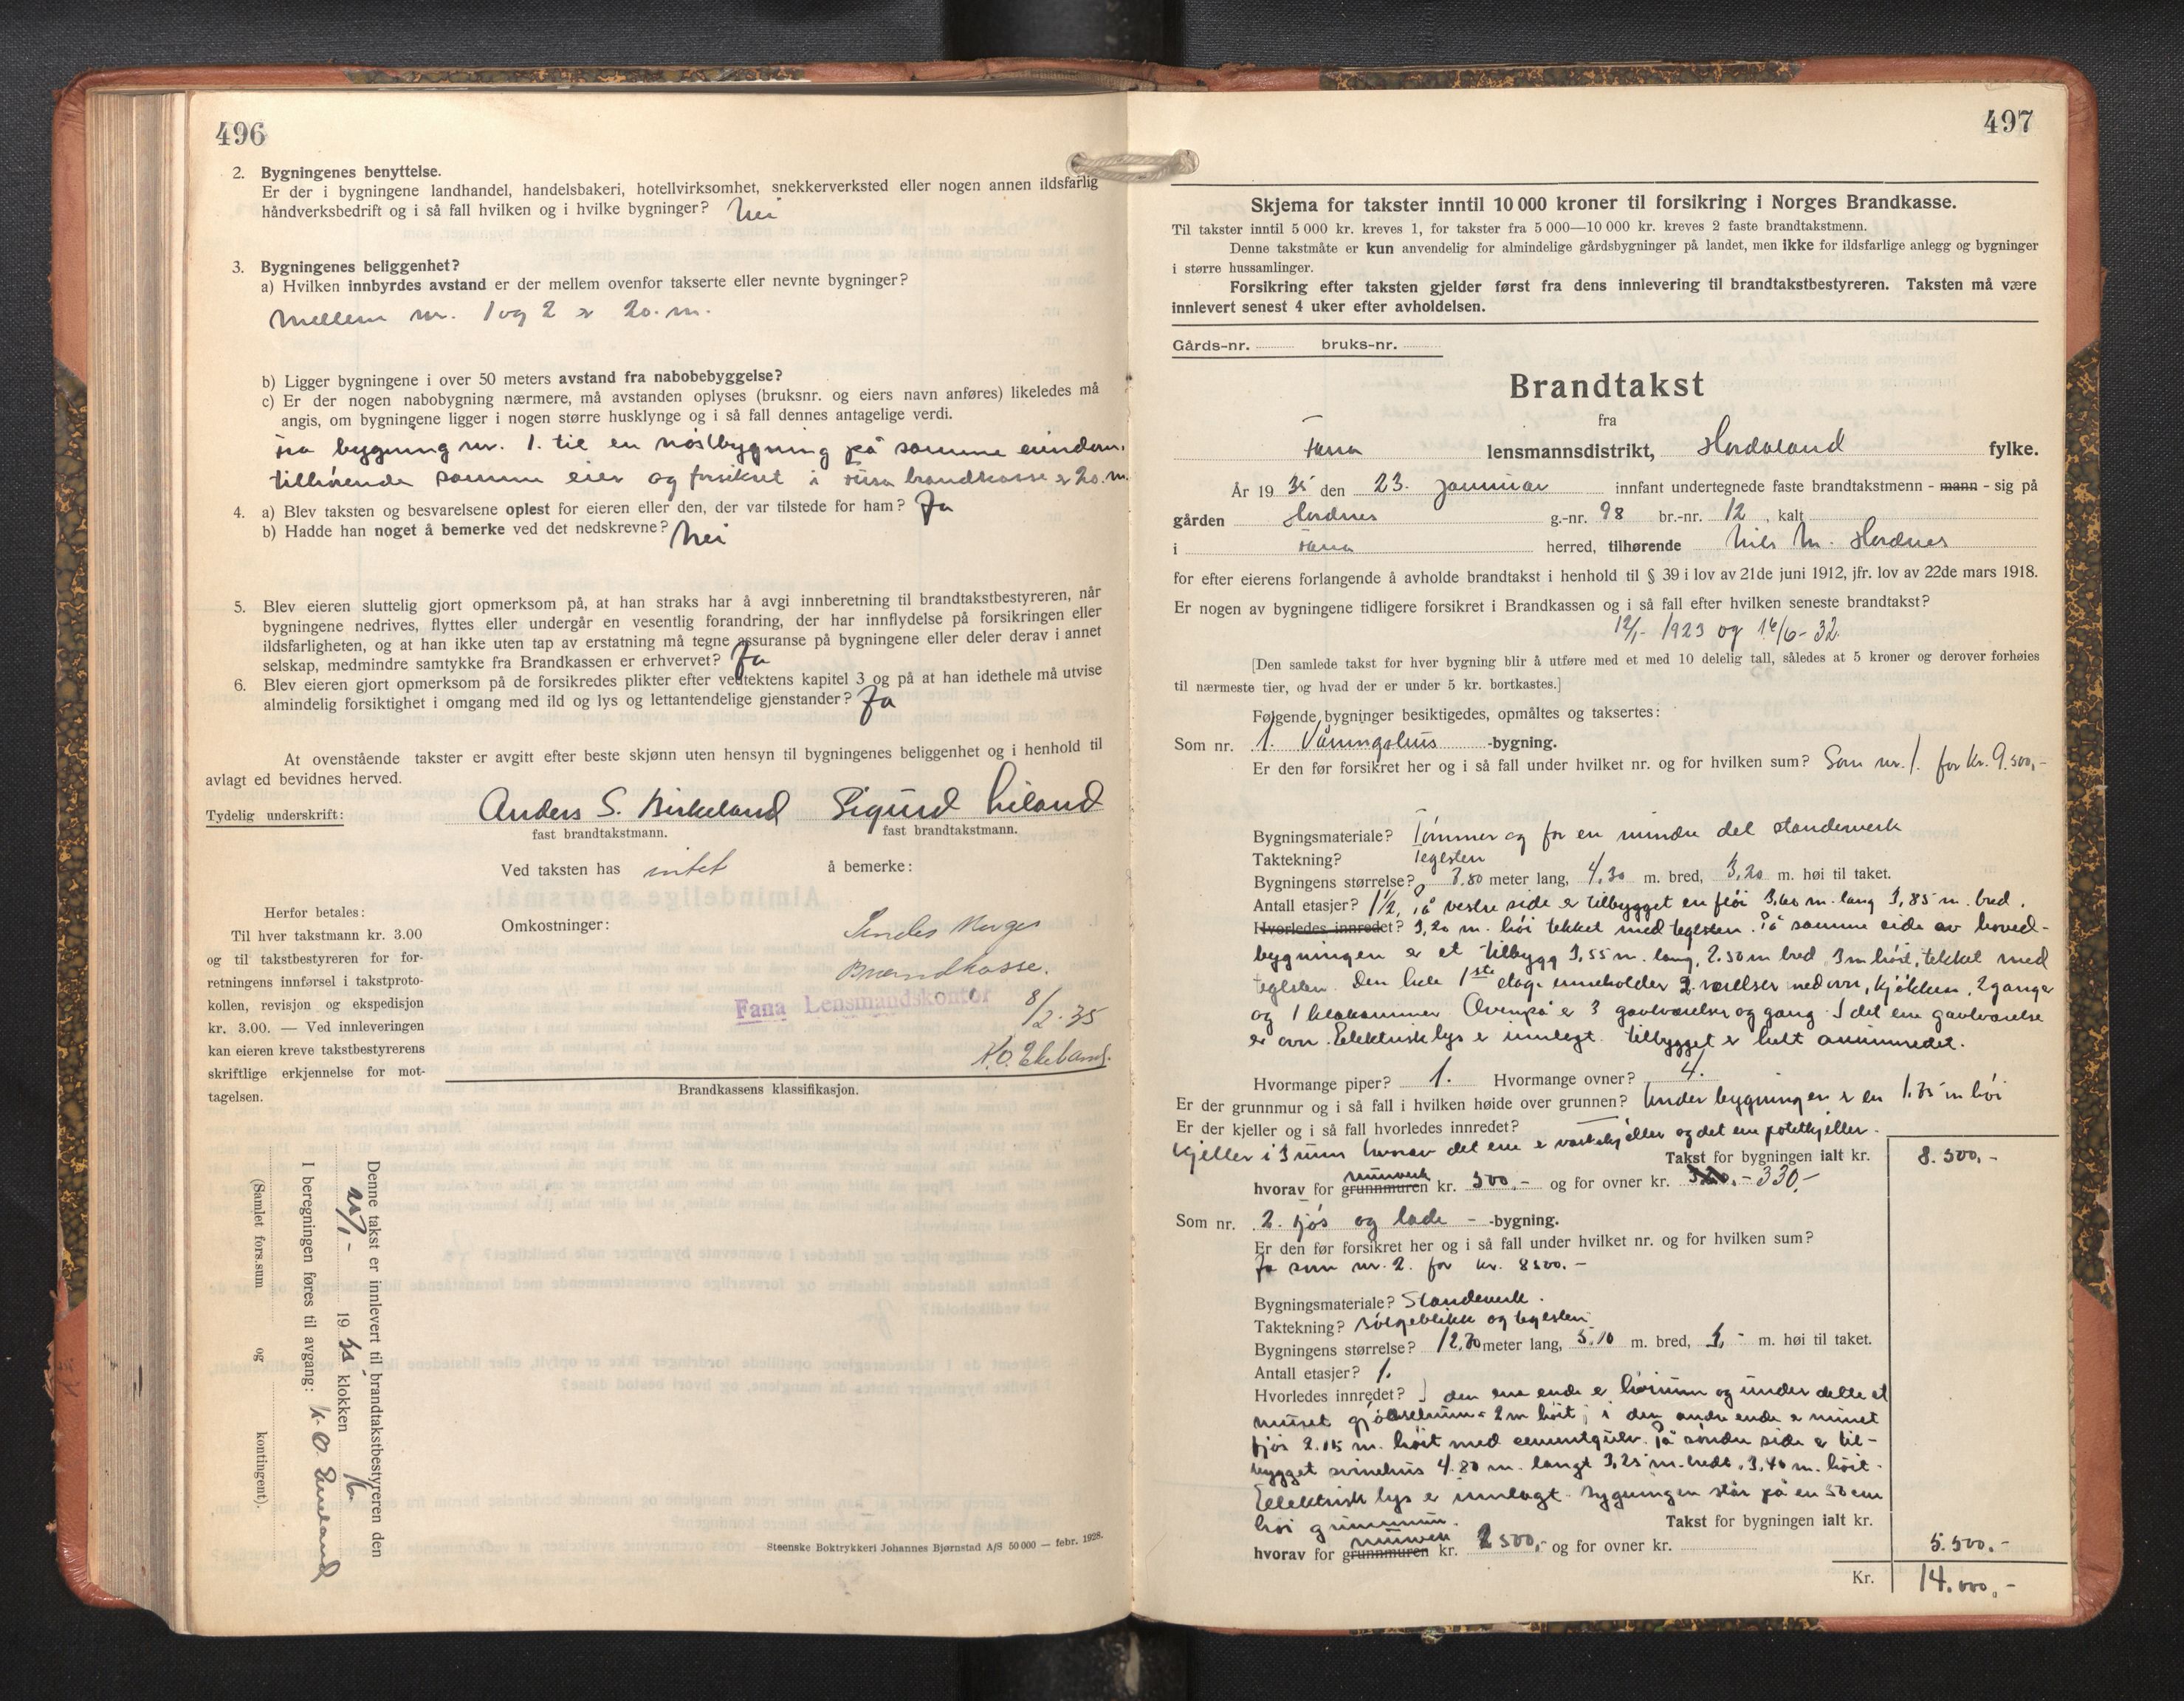 496
2. Bygningenes benyttelse.
Er der i bygningene landhandel, handelsbakeri, hotellvirksomhet, snekkerverksted eller nogen annen ildsfarlig
håndverksbedrift og i så fall hvilken og i hvilke bygninger? Nei
3. Bygningenes beliggenhet?
a) Hvilken innbyrdes avstand er der mellem ovenfor takserte eller nevnte bygninger?
Mellem nr. 1 og 2 er 20. m.
b) Ligger bygningene i over 50 meters avstand fra nabobebyggelse?
c) Er der nogen nabobygning nærmere, må avstanden oplyses (bruksnr. og eiers navn anføres) likeledes må
angis, om bygningene ligger i nogen større husklynge og i så fall dennes antagelige verdi.
Fra bygning nr. 1. til en nöstbygning på samme eiendom,
tilhörende samme eier og forsikret i Fusa brandkasse er 20. m.
4. a) Blev taksten og besvarelsene oplest for eieren eller den, der var tilstede for ham? Ja
b) Hadde han noget å bemerke ved det nedskrevne? Nei
5. Blev eieren sluttelig gjort opmerksom på, at han straks har å avgi innberetning til brandtakstbestyreren, når
bygningene nedrives, flyttes eller undergår en vesentlig forandring, der har innflydelse på forsikringen eller
ildsfarligheten, og at han ikke uten tap av erstatning må tegne assuranse på bygningene eller deler derav i annet
selskap, medmindre samtykke fra Brandkassen er erhvervet? Ja
6. Blev eieren gjort opmerksom på de forsikredes plikter efter vedtektens kapitel 3 og på at han idethele må utvise
almindelig forsiktighet i omgang med ild og lys og lettantendelige gjenstander? Ja
At ovenstående takster er avgitt efter beste skjønn uten hensyn til bygningenes beliggenhet og i henhold til
avlagt ed bevidnes herved.
Tydelig underskrift: Anders S. Birkeland Sigurd Liland
fast brandtakstmann. fast brandtakstmann.
Ved taksten has intet å bemerke:
Herfor betales:
Til hver takstmann kr. 3.00
og til takstbestyreren for for-
retningens innførsel i takstproto-
kollen, revisjon og ekspedisjon
kr. 3.00. — Ved innleveringen
kan eieren kreve takstbestyrerens
skriftlige erkjennelse for mot-
tagelsen.
Omkostninger:
Sendes Norges
Brandkasse.
Fana Lensmandskontor 8/2.35
K.O. Ekeland.
Brandkassens klassifikasjon.
Denne takst er innlevert til brandtakstbestyreren den
19 35 klokken
I beregningen føres til avgang: K. O. Ekeland
(Samlet fors.sum og kontingent).
Steenske Boktrykkeri Johannes Bjørnstad A/S 50 000 — febr. 1928.
497
Skjema for takster inntil 10 000 kroner til forsikring i Norges Brandkasse.
Til takster inntil 5 000 kr. kreves 1, for takster fra 5 000—10 000 kr. kreves 2 faste brandtakstmenn.
Denne takstmåte er kun anvendelig for almindelige gårdsbygninger på landet, men ikke for ildsfarlige anlegg og bygninger
i større hussamlinger.
Forsikring efter taksten gjelder først fra dens innlevering til brandtakstbestyreren. Taksten må være
innlevert senest 4 uker efter avholdelsen.
Gårds-nr. bruks-nr.
Brandtakst
fra
Fana lensmannsdistrikt, Hordaland fylke.
År 19 35 den 23. januar innfant undertegnede faste brandtakstmenn - mann - sig på
gården Hordnes g.-nr. 98 br.-nr. 12, kalt
i Fana herred, tilhørende Nils M. Hordnes
for efter eierens forlangende å avholde brandtakst i henhold til § 39 i lov av 21de juni 1912, jfr. lov av 22de mars 1918.
Er nogen av bygningene tidligere forsikret i Brandkassen og i så fall efter hvilken seneste brandtakst?
12/1- 1923 og 16/6-32.
[Den samlede takst for hver bygning blir å utføre med et med 10 delelig tall, således at 5 kroner og derover forhøies
til nærmeste tier, og hvad der er under 5 kr. bortkastes.]
Følgende bygninger besiktigedes, opmåltes og taksertes:
Som nr. 1. Våningshus -bygning.
Er den før forsikret her og i så fall under hvilket nr. og for hvilken sum? Som nr. 1. for kr. 9.500,-
Bygningsmateriale? Tömmer og for en mindre del standerverk
Taktekning? Teglsten
Bygningens størrelse? 7,80 meter lang, 4,30 m. bred, 3,20 m. høi til taket.
Antall etasjer? 1 1/2, På vestre side er tilbygget en flöi 3,60 m. lang 3,85 m. bred.
Hvorledes innredet? 3,20 m. höi tekket med teglsten. På samme side av hoved-
bygningen er et tilbygg 3,55 m. lang, 2.50 m bred 3 m höit, tekket med
teglsten. Den hele 1ste etage inneholder 2 værelser med ovn, kjökken, 2 ganger
og 1 kleskammer. Ovenpå er 3 gavlværelser og gang. I det ene gavlværelse
er ovn. Elektrisk lys er innlagt. Tilbygget er helt uinnredet.
Hvormange piper? 1. Hvormange ovner? 4.
Er der grunnmur og i så fall i hvilken høide over grunnen? Under bygningen er en 1.75 m höi
Er der kjeller og i så fall hvorledes innredet?
kjeller i 3 rum hvorav det ene er vaskekjeller og det ene potetkjeller.
Takst for bygningen ialt kr. 8.500,-
hvorav for grunnmuren murverk kr. 500.- og for ovner kr. 330,-
Som nr. 2. fjös og lade -bygning.
Er den før forsikret her og i så fall under hvilket nr. og for hvilken sum?
Ja som nr. 2. for kr. 8500.-
Bygningsmateriale? Standerverk.
Taktekning? Bölgeblikk og teglsten.
Bygningens størrelse? 12,70 meter lang, 5.10 m. bred, 5,- m. høi til taket.
Antall etasjer? 1.
Hvorledes innredet? I den ene ende er hörum og under dette et
muret gjödselrum 2 m höit; i den andre ende er muret
fjös 2.15 m. höit med cementgulv. På söndre side er til-
bygget svinehus 4.80 m. langt 3,25 m. bredt, 3,40 m. höit.
Elektrisk lys er innlagt. Bygningen står på en 50 cm
höi grunnmur.
Takst for bygningen ialt kr. 5.500.-
hvorav for grunnmuren murverk kr. 2500,- og for ovner kr.
Kr. 14.000,-